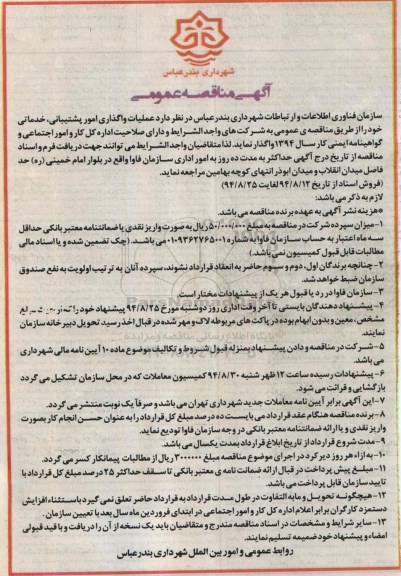 شهرداری بندرعباس
آگهی مناقصه عمومی
سازمان فناوری اطلاعات و ارتباطات شهرداری بندرعباس در نظر دارد عملیات واگذاری امور پشتیبانی، خدماتی
خود را از طریق مناقصه ی عمومی به شرکت های واجد الشرایط و دارای صلاحیت اداره کل کار و امور اجتماعی و
گواهینامه ایمنی کار سال ۱۳۹۴ واگذار نماید. لذا متقاضیان واجد الشرایط می توانند جهت دریافت فرم و اسناد
مناقصه از تاریخ درج آگهی حداکثر به مدت ده روز به امور اداری سازمان فاوا واقع در بلوار امام خمینی (ره) حد
فاصل میدان انقلاب و میدان ابوذر انتهای کوچه بهامین مراجعه نماید.
(فروش اسناد از تاریخ ۹۴/۸/۱۲ لغایت ۹۴/۸/۲۵)
لازم به ذکر می باشد:
*هزینه نشر آگهی به عهده برنده مناقصه می باشد.
۱-میزان سپرده شرکت در مناقصه به مبلغ ۵۰/۰۰۰/۰۰۰ ریال به صورت واریز نقدی یا ضمانتنامه معتبر بانکی حداقل
سه ماه اعتبار به حساب سازمان فاوا به شماره ۰۱۰۹۳۶۲۷۶۵۰۰۱ می باشد. (چک تضمین شده و یا اسناد مالی
مطالبات قابل قبول کمیسیون نمی باشد.)
۲-چنانچه برندگان اول، دوم و سوم حاضر به انعقاد قرارداد نشوند، سپرده آنان به ترتیب اولویت به نفع صندوق
سازمان ضبط خواهد شد.
۳-سازمان فاوا در رد یا قبول هر یک از پیشنهادات مختار است.
۴-پیشنهاد دهندگان بایستی تا آخر وقت اداری روز دوشنبه مورخ ۹۴/۸/۲۵ پیشنهاد خود را
مشخص، معین و بدون ابهام بوده در پاکت های مربوطه لاک و مهر شده در قبال اخذ رسید تحویل دبیرخانه سازمان
نمایند.
۵-شرکت در مناقصه و دادن پیشنهاد بمنزله قبول شروط و تکالیف موضوع ماده ۱۰ آیین نامه مالی شهرداری
می باشد.
۶-پیشنهادات رسیده ساعت ۱۲ ظهر شنبه ۹۴/۸/۳۰ کمیسیون معاملات که در محل سازمان تشکیل می گردد
بازگشایی و قرائت می شود.
۷-این آگهی برابر آیین نامه معاملات جدید شهرداری تهران می باشد و صرفاً یک نوبت منتشر می گردد.
۸-برنده مناقصه هنگام عقد قرارداد می بایست ده درصد مبلغ کل قرارداد را به عنوان حسن انجام کار بصورت
واریز نقدی و یا ارائه ضمانتنامه معتبر بانکی در وجه سازمان فاوا تودیع نماید.
۹-مدت شروع قرارداد از تاریخ ابلاغ قرارداد بمدت یکسال می باشد.
۱۰-به ازاء هر روز دیر کرد در اجرای موضوع مناقصه مبلغ ۳۰۰۰۰۰۰ ریال از مطالبات پیمانکار کسر می گردد.
۱۱-مبلغ پیش پرداخت در قبال ارائه ضمانت نامه ی معتبر بانکی تا سقف حداکثر ۲۵ درصد مبلغ کل قرارداد با
تایید سازمان قابل پرداخت می باشد.
۱۲-هیچگونه تحویل و مابه التفاوت در طول مدت قرارداد به قرارداد حاضر تعلق نمی گیرد باستثناء افزایش
دستمزد کارگران برابر اعلام اداره کل کار و امور اجتماعی در ابتدای فروردین ماه سال بعد با تعیین سازمان.
۱۳-سایر شرایط و مشخصات در اسناد مناقصه مندرج و متقاضیان باید یک نسخه از آن را دریافت و با قید قبولی
امضاء و پیشنهاد خود ضمیمه تسلیم نمایند.
روابط عمومی و امور بین الملل شهرداری بندرعباس